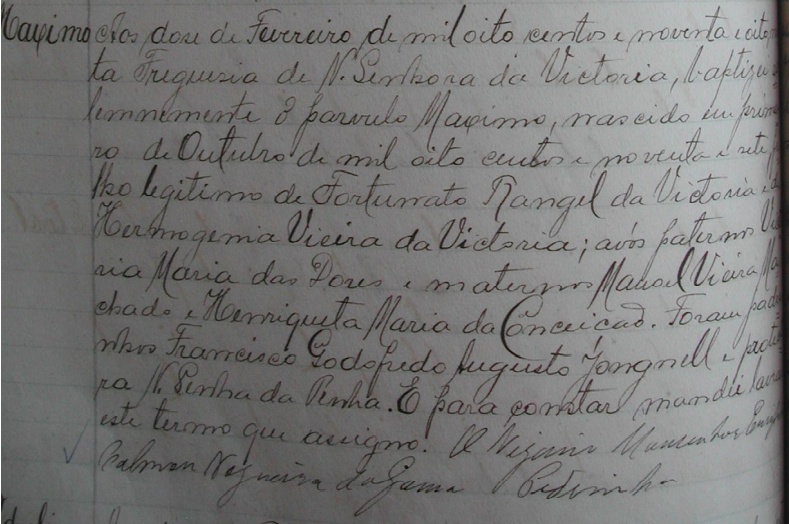 Maximo Aos dose de Fevereiro de mil oito centos e noventa e oito
ta Freguezia de N. Senhora da Victoria, baptizei
lemnemente o parvulo Maximo, nascido em prim
ro de Outubro de mil oito centos e noventa e sete
lho legitimo de Fortunato Rangel da Victoria e
Hermogenia Vieira da Victoria; avós paternos
ria Maria das Dores e maternos Manoel Vieira Ma
chado e Henriqueta Maria da Conceição. Foram padri
nhos Francisco Godofredo Augusto Jongnell e prote
ra N. Senha da Penha. E para constar mandei lavra
este termo que assigno. O Vigario Monsenhor
Calmon Nogueira da Gama Pedrinha